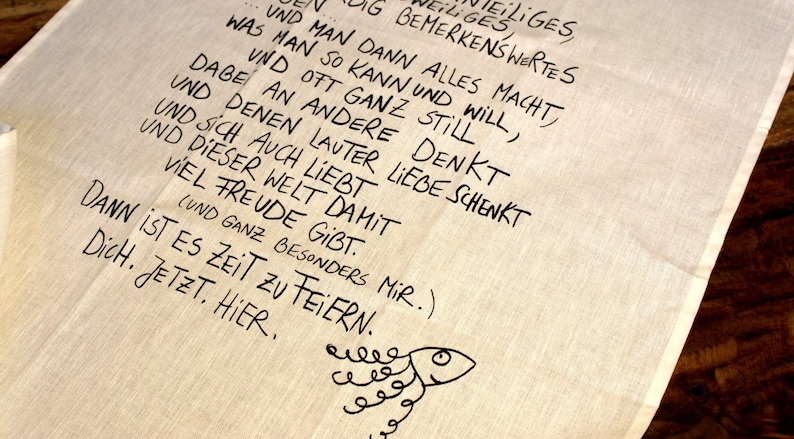 BEMERKENSWERTES
... UND MAN DANN ALLES MACHT,
WAS MAN SO KANN UND WILL,
UND OFT GANZ STILL
DABEI AN ANDERE DENKT
UND DENEN LAUTER LIEBE SCHENKT
UND SICH AUCH LIEBT
UND DIESER WELT DAMIT
VIEL FREUDE GIBT.
(UND GANZ BESONDERS MIR.)
DANN IST ES ZEIT ZU FEIERN.
DICH. JETZT. HIER.